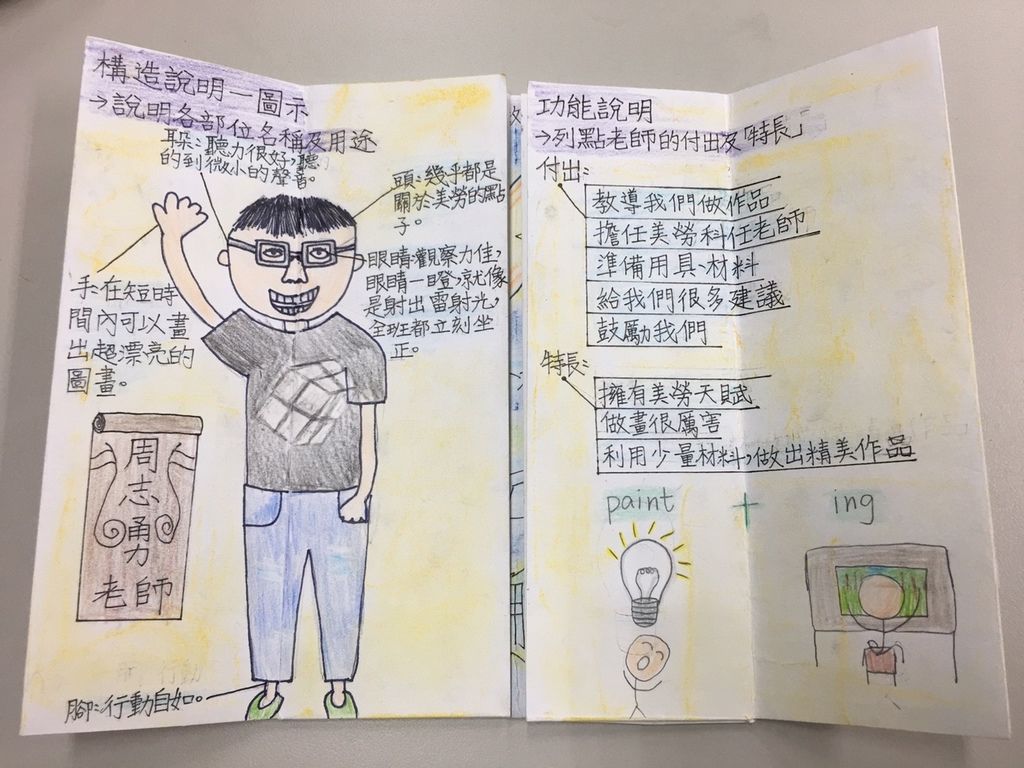 構造說明一圖示
→說明各部位名稱及用途
耳朵:聽力很好,聽
的到微小的聲音。
頭:幾乎都是
關於美勞的點
子。
眼睛:觀察力佳,
眼睛一瞪,就像
是射出雷射光,
全班都立刻坐
正。
手:在短時
間內可以畫
出超漂亮的
圖畫。
周志勇老師
腳:行動自如。
功能說明
→列點老師的付出及「特長」
付出:
教導我們做作品
擔任美勞科任老師
準備用具、材料
給我們很多建議
鼓勵我們
特長:
擁有美勞天賦
做畫很厲害
利用少量材料,做出精美作品
paint + ing